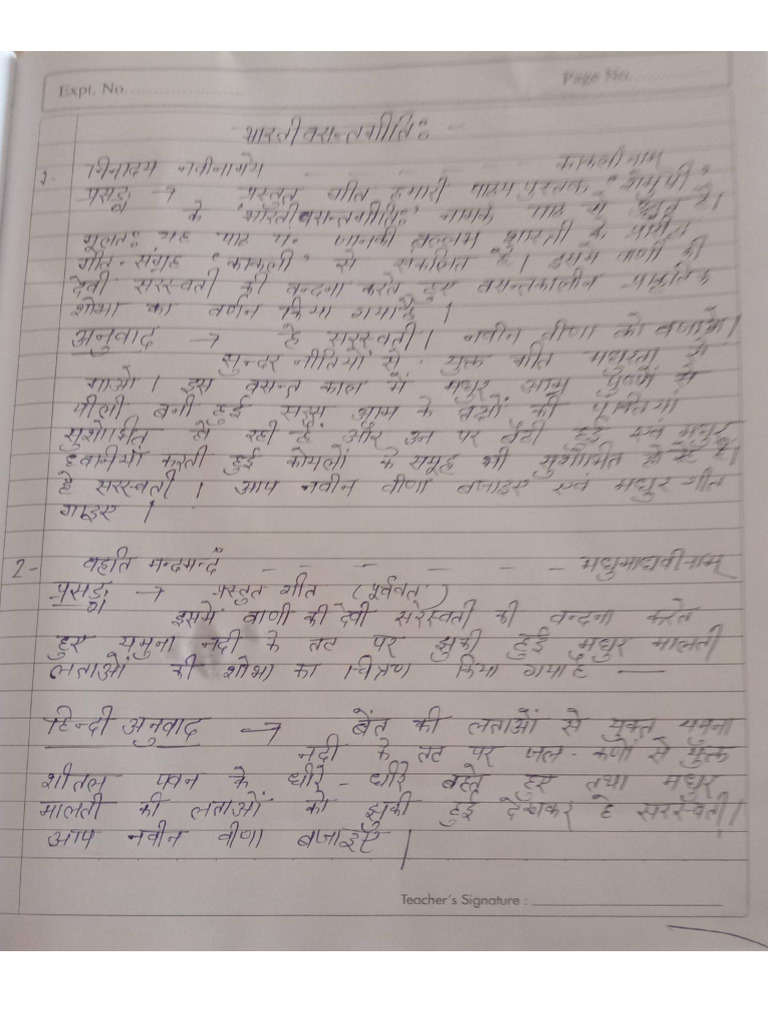 Expt. No.
Page No.
भारतीवसन्तगीतिः
1. निनादय नवीनामये - - - - काकलीनाम्
प्रसङ्ग → प्रस्तुत गीत हमारी पाठ्य पुस्तक "शेमुषी"
के 'भारतीवसन्तगीतिः' नामक पाठ से उद्धृत है।
मूलतः यह पाठ पं. जानकी वल्लभ शास्त्री के
गीत-संग्रह 'काकली' से संकलित है। इसमें वाणी की
देवी सरस्वती की वन्दना करते हुए वसन्तकालीन प्राकृतिक
शोभा का वर्णन किया गया है।
अनुवाद → हे सरस्वती। नवीन वीणा को बजाओ।
सुन्दर नीतियों से युक्त गीत मधुरता से
गाओ। इस वसन्त काल में मधुर आम्र पुष्पों से
पीली बनी हुई सरस आम के वृक्षों की पंक्तियाँ
सुशोभीत हो रही हैं और उन पर बैठी हुई एवं मधुर
ध्वनियाँ करती हुई कोयलों के समूह भी सुशोभीत हो रहे हैं।
हे सरस्वती। आप नवीन वीणा बजाइए एवं मधुर गीत
गाइए।
2- वहति मन्दमन्दं - - - - - - - मधुमाधवीनाम्
प्रसङ्ग → प्रस्तुत गीत (पूर्ववत्)
इसमें वाणी की देवी सरेस्वती की वन्दना करेत
हुए यमुना नदी के तट पर झुकी हुई मधुर मालती
लताओं की शोभा का चित्रण किया गया है —
हिन्दी अनुवाद → बेंत की लताओं से युक्त यमुना
नदी के तट पर जल-कणों से युक्त
शीतल पवन के धीरे-धीरे बहते हुए तथा मधुर
मालती की लताओं को झुकी हुई देखकर हे सरस्वती।
आप नवीन वीणा बजाइए।
Teacher's Signature :